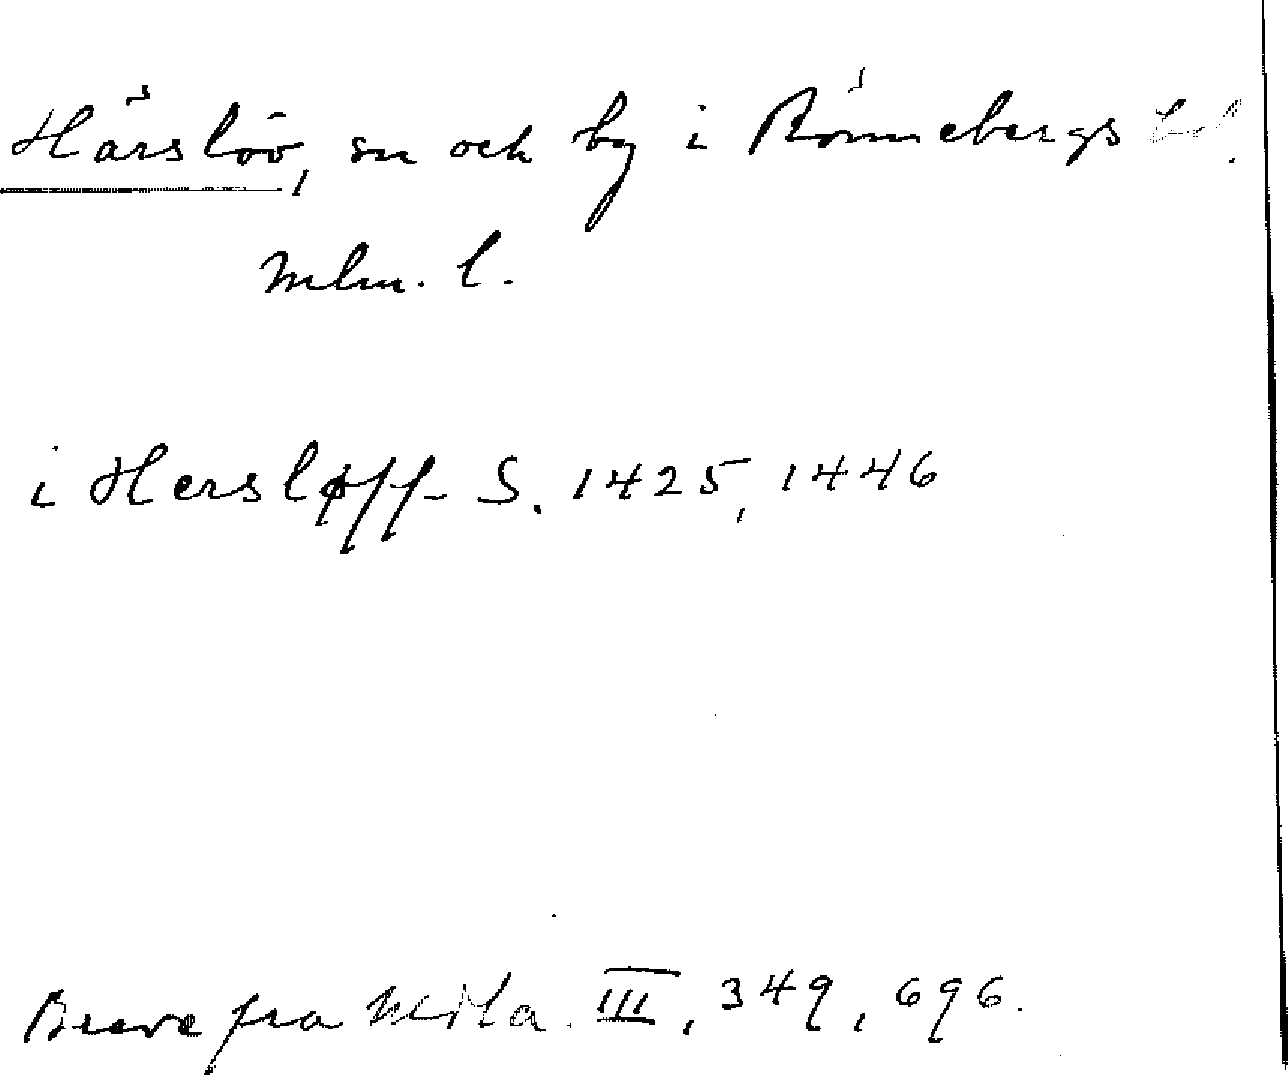 Härslöv, sn och by i Rönnebergs hd.
Mlm. l.
i Hersløff S. 1425, 1446
Breve fra Midla. III, 349, 696.